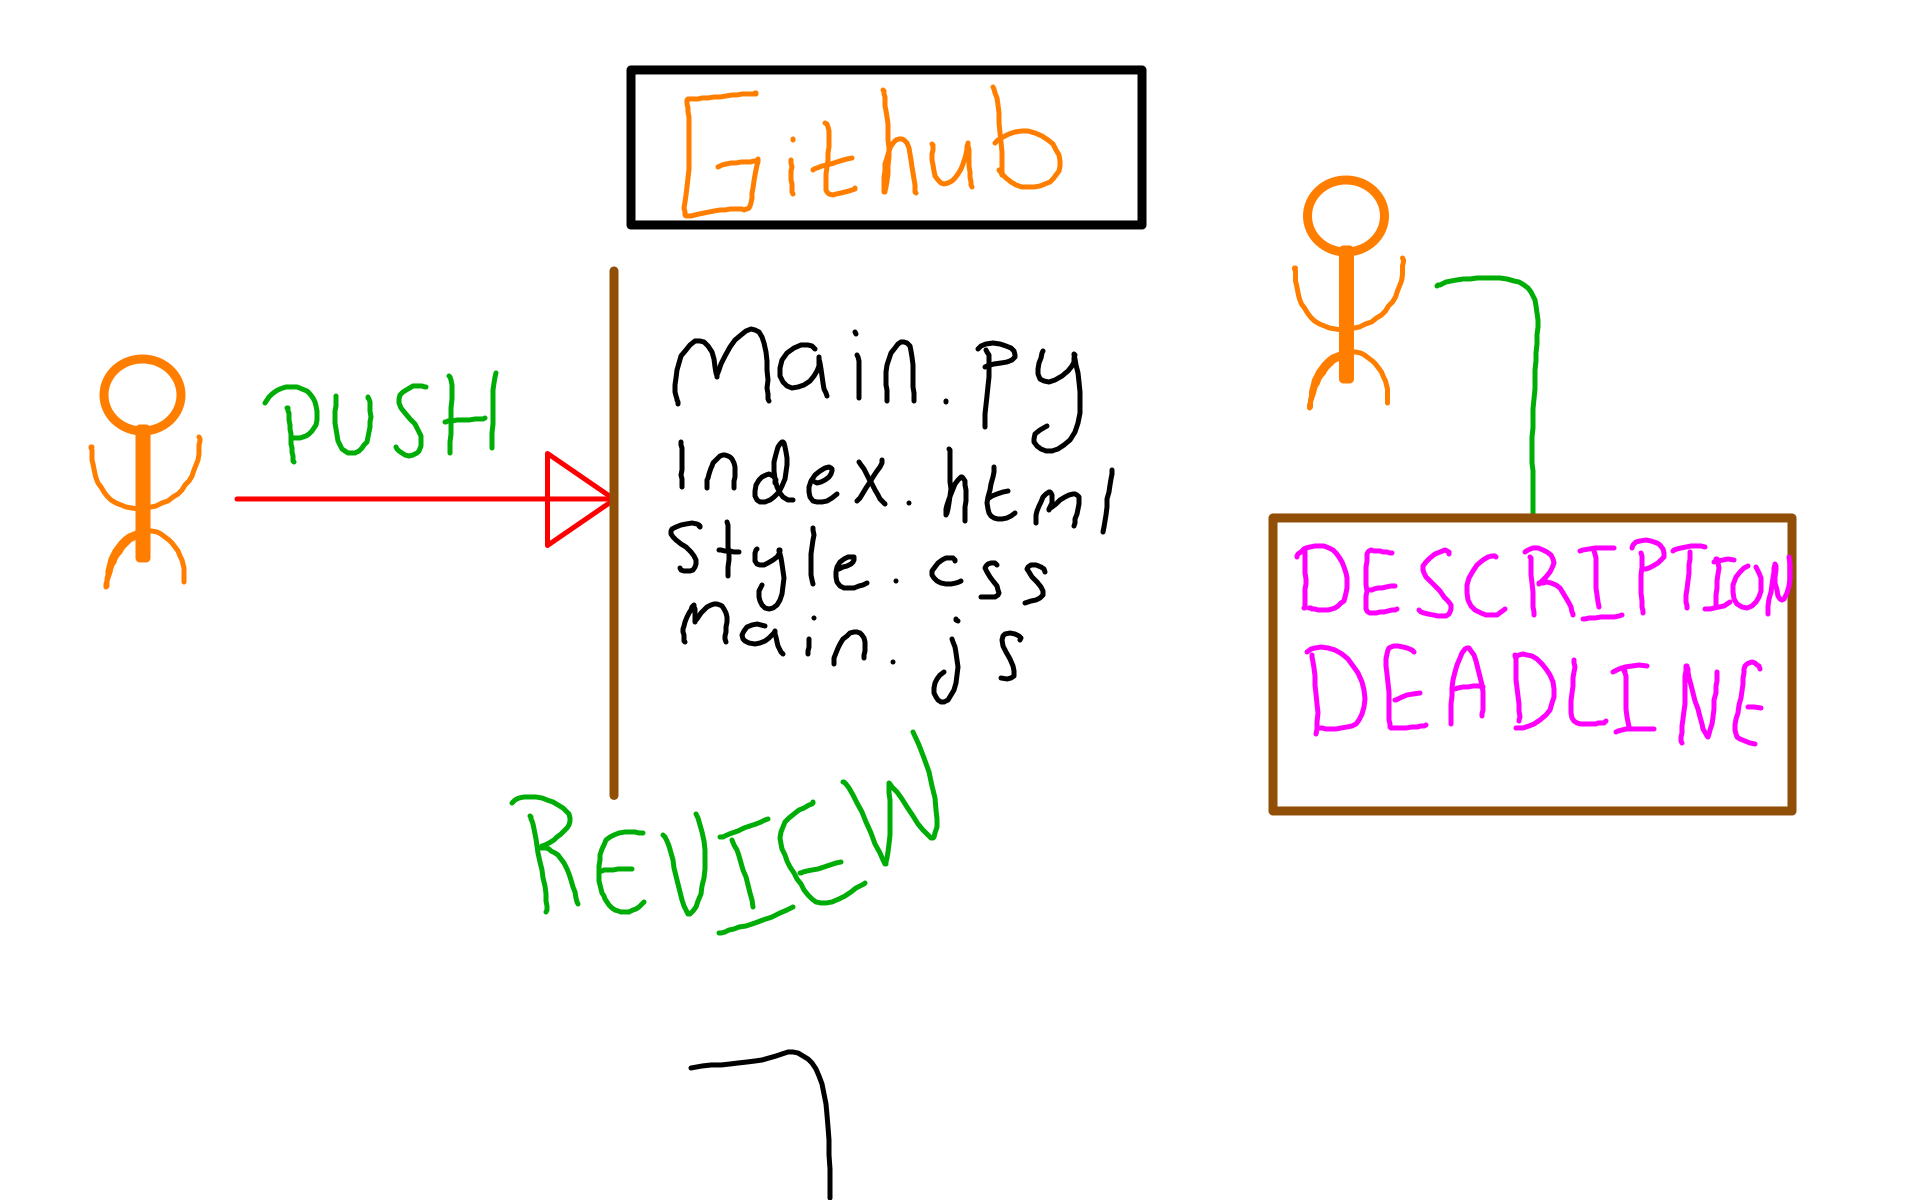 Github
PUSH
Main.py
Index.html
Style.css
main.js
REVIEW
DESCRIPTION
DEADLINE